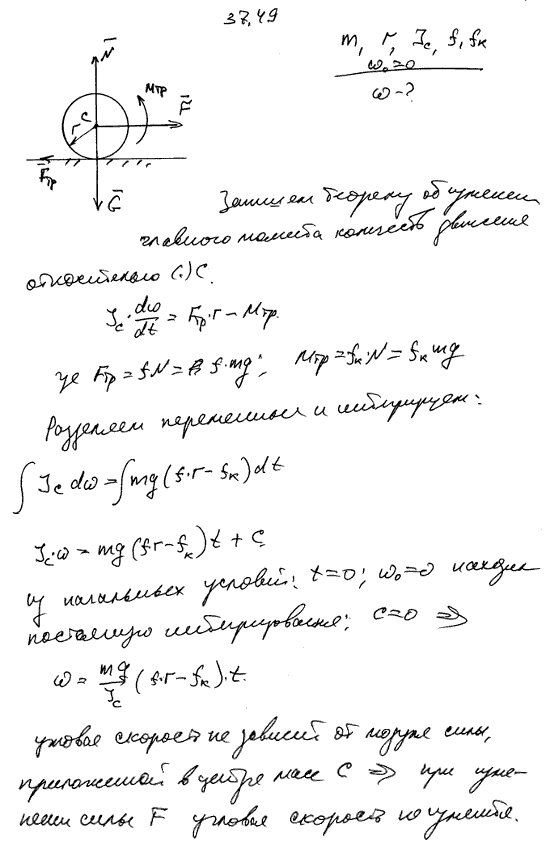 37.49
m, r, J_c, f, f_k
ω₀=0
ω-?
N
Mтр
C
F
r
Fтр
G
Запишем теорему об изменении
главного момента количеств движения
относительно (·) C.
J_c · dω/dt = Fтр · r − Mтр.
где Fтр = fN = f·mg; Mтр = f_k·N = f_k mg
Разделяем переменные и интегрируем:
∫ J_c dω = ∫ mg (f·r − f_k) dt
J_c·ω = mg (f·r − f_k) t + C
из начальных условий: t=0; ω₀=0 находим
постоянную интегрирования: C=0 ⇒
ω = mg/J_c (f·r − f_k)·t.
угловая скорость не зависит от модуля силы,
приложенной в центре масс C ⇒ при изме-
нении силы F угловая скорость не изменится.